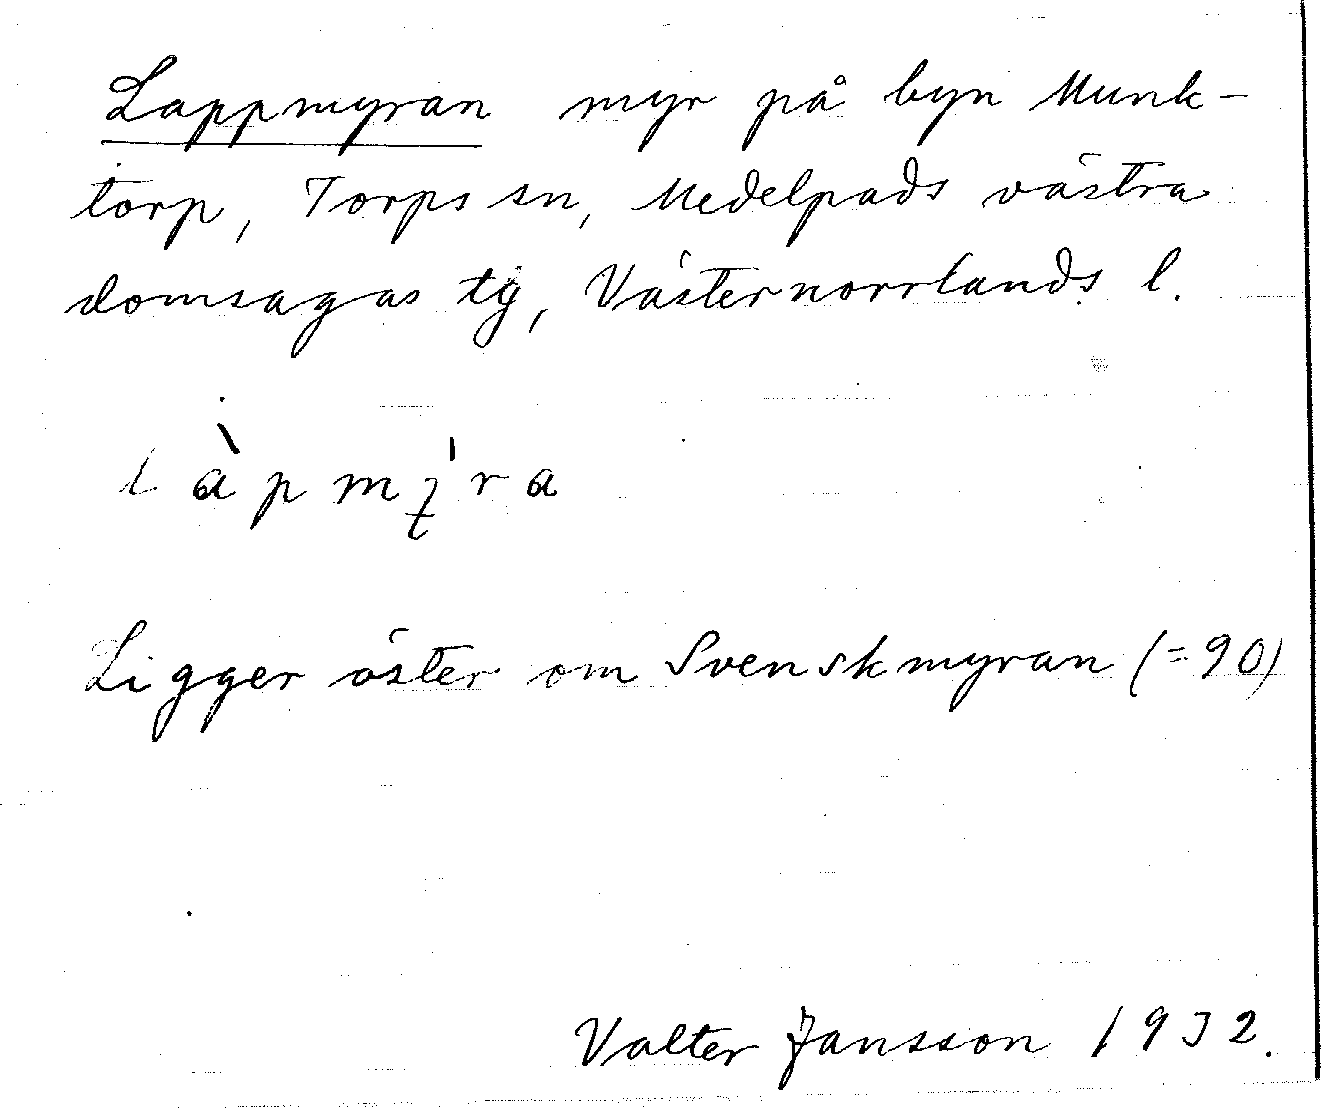 Lappmyran myr på byn Munk-
torp, Torps sn, Medelpads västra
domsagas tg, Västernorrlands l.
làpmy̍ra
Ligger öster om Svenskmyran (=90)
Valter Jansson 1932.